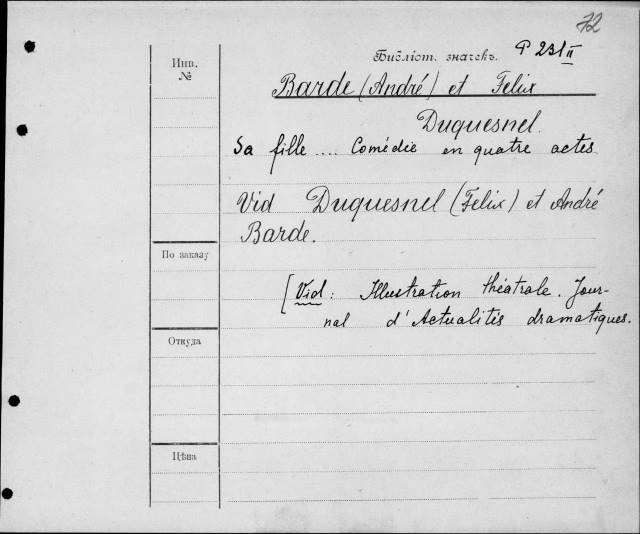 72
Библіот. значекъ. P 231 II
Инв.
№
Barde (André) et Felix
Duquesnel.
Sa fille .... Comédie en quatre actes
Vid Duquesnel (Felix) et André
Barde.
По заказу
[Vid: Illustration théatrale. Jour-
nal d'Actualités dramatiques.
Откуда
Цѣна